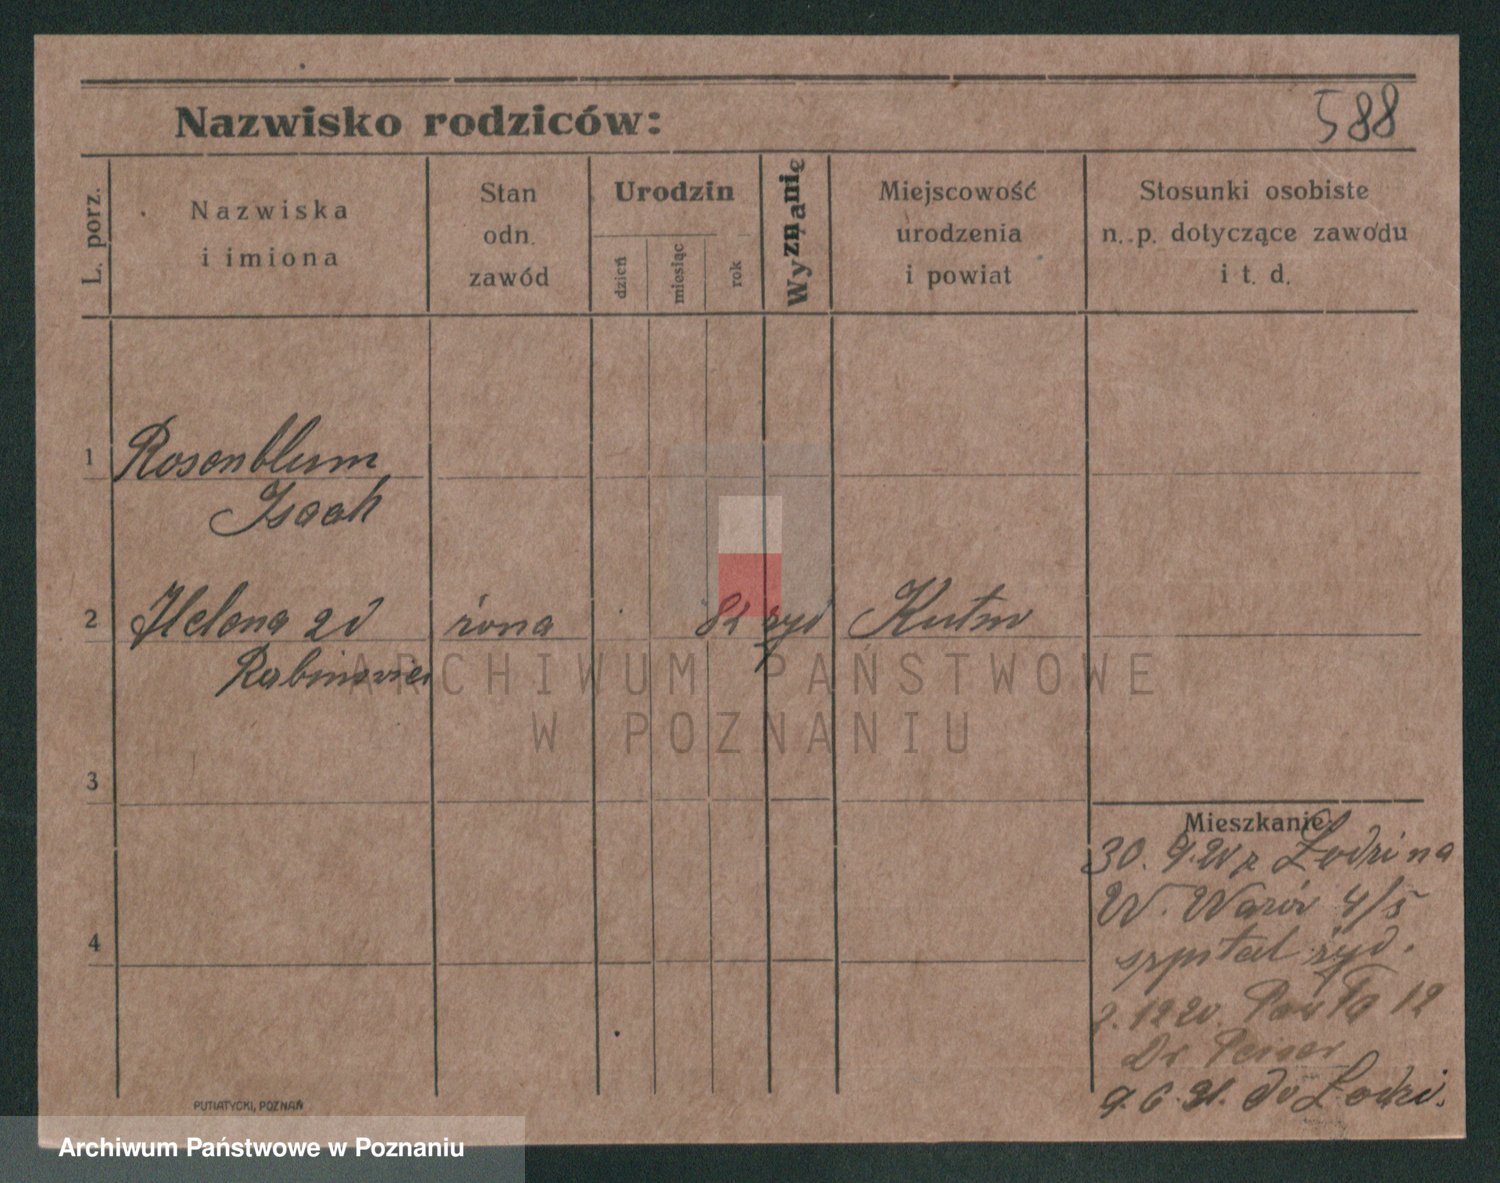 Nazwisko rodziców:
588
L. porz.
Nazwiska
i imiona
Stan
odn.
zawód
Urodzin
dzień
miesiąc
rok
Wyznanię
Miejscowość
urodzenia
i powiat
Stosunki osobiste
n. p. dotyczące zawodu
i t. d.
1
Rosenblum
Isaak
2
Helena zd
żona
82
żyd
Kutno
Rabinowicz
ARCHIWUM PAŃSTWOWE
W POZNANIU
3
Mieszkanie
30. 9. 20 z Łodzi na
W. 4/5
4
szpital żyd.
12
Dr
9. 6. 21. do Łodzi.
PUTIATYCKI, POZNAŃ
Archiwum Państwowe w Poznaniu